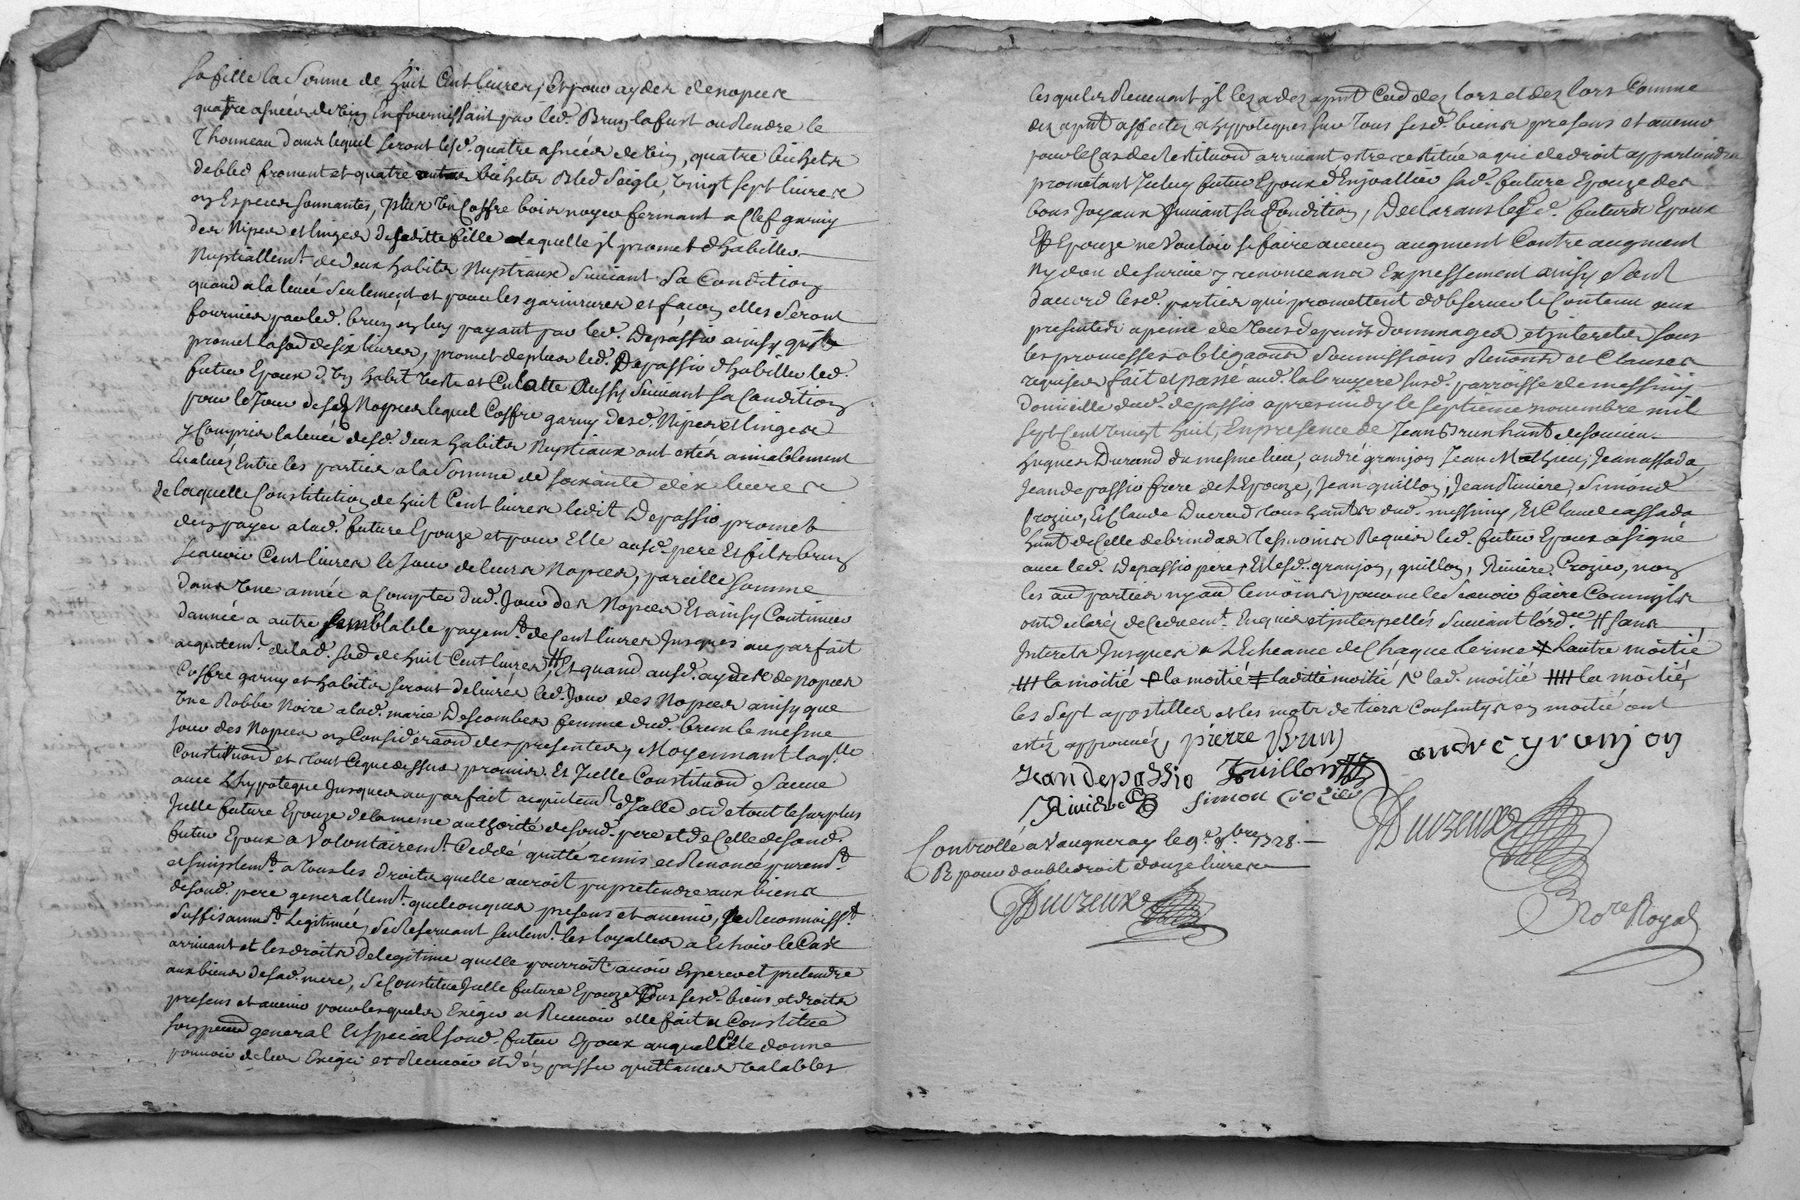 sa fille la somme de huit Cent livres, Et pour ayder de nopces
quatre asnées de vin En fournissant par led. Brun la fust ou Rendre le
Thonneau dans lequel seront lesd. quatre asnées de vin, quatre bichets
de bled froment et quatre bichets Bled seigle, vingt sept livres
en Especes sonnantes, plus Un Coffre bois noyer fermant a Clef garny
des Nipes et linges de saditte fille laquelle il promet d'habiller
Nuptiallemt. de deux habits Nuptiaux suivant sa Condition
quand a la levée seulement et pour les garnitures et façon elles seront
fournies par led. brun en luy payant par led. Depassio ainsy qu'il
promet la so͞e de six livres, promet de plus led. Depassio d'habiller led.
futur Epoux d'Un habit veste et Culotte Aussy suivant sa Condition
pour le Jour de ses Nopces lequel Coffre garny desd. Nipes et linges
y Compris la levée desd. deux habits Nuptiaux ont estés amiablement
Evalués Entre les parties a la somme de soixante dix livres
de laquelle Constitution de huit Cent livres ledit Depassio promet
den payer a lad. future Epouze et pour Elle ausd. pere Et fils brun
scavoir Cent livres le Jour de leurs Nopces, pareille somme
dans Une année a Compter dud. Jour des Nopces Et ainsy Continuer
d'année a autre semblable payemt. de Cent livres Jusques au parfait
acquitemt. de lad. so͞e de huit Cent livres, # Et quand ausd. aydes de nopces
Coffre garny et habits seront delivrés led. Jour des Nopces ainsy que
Une Robbe Noire a lad. marie Descombes femme dud. brun le mesme
Jour des Nopces en Consideraon des presentes, Moyennant laqlle
Constituon et tout Ce que dessus promis. Et Icelle Constituon sauve
avec L'hypoteque Jusques au parfait acquitemt. d'Icelle et de tout le surplus
Icelle future Epouze de la meme authorité de sond. pere et de Celle de sond.
futur Epoux a Volontairemt. Ceddé quitté remis et Renoncé puremt.
et simplemt. a tous les droits quelle auroit pu pretendre aux biens
de sond. pere generallemt. quelconques presens et avenir, se Reconnoisst.
suffisammt. Legitimée, se Reservant seulemt. les loyalles a Echoir le Cas
arrivant et les droits de legitime quelle pourroit avoir Esperer et pretendre
aux biens de sad. mere, se Constitue Icelle future Epouze tous sesd. biens et droits
presens et avenir pour lesquels Exiger et Recevoir elle fait et Constitue
son general Et special sond. futur Epoux auquel Elle donne
pouvoir de les Exiger et Recevoir et d'en passer quittances valables
lesquels Recevant il les a des apnt Ced dez lors et dez lors Comme
dez apnt affectez et hypotequés sur tous sesd. biens presens et avenir
pour le Cas de Restituon arrivant estre restitué a qui de droit appartiendra
prometant Iceluy futur Epoux d'Enjoaller sad. future Epouze des
bons Joyaux suivant sa Condition, Declarans lesd. futurs Epoux
Et Epouze ne Vouloir se faire aucun augment Contre augment
Ny don de survie y renonceant Expressement ainsy sont
d'accord lesd. parties qui promettent d'observer le Contenu aux
presentes a peine de tous depens dommages et interets sous
les promesses obligaons soumissions Renons et Clauses
requises fait et passé aud. la bruyere susd. parroisse de messimy
domicille dud. depassio apres midy le septieme novembre mil
sept Cent vingt huit, En presence de Jean Brun hant de soucieu
hugues Durand du mesme lieu, andré granjon Jean Mathieu, Jean assada,
Jean depassio frere de L'Epouze, Jean guillon, Jean Riviere, simond
Crozier, Et Claude Ducreud tous hants dud. messimy, Et Claude assada
hant de Celle de brindas tesmoins Requis led. futur Epoux a signé
avec led. Depassio pere, Et lesd. granjon, guillon, Riviere, Crozier, non
les au parties ny au temoins pour ne le scavoir faire Comm'ils
ont declarés de Ce duemt. Enquis et interpellés suivant l'ordce # sans
Interets Jusques a L'Echeance de Chaque terme ⨳ lautre moitié
## la moitié ᚋ la moitié ⧧ laditte moitié N° lad. moitié #### la moitié,
les sept apostilles et les mots de tiers Convertys en moitié ont
estés approuvés, pierre brun andre granjon
Jean depassio Guillon
Riviere simon crozier
Duizeux
Controllé a Vaugneray le 9e. 9bre. 1728.
R pour double droit douze livres
Duizeux
Nore Royal